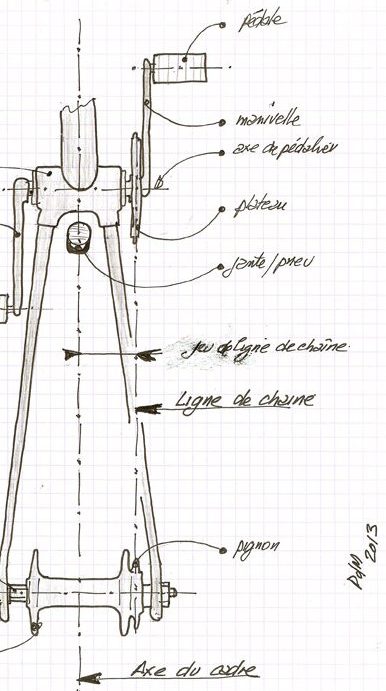 pédale
manivelle
axe de pédalier
plateau
jante/pneu
jeu de ligne de chaîne
Ligne de chaîne
pignon
PdM
2013
Axe du cadre